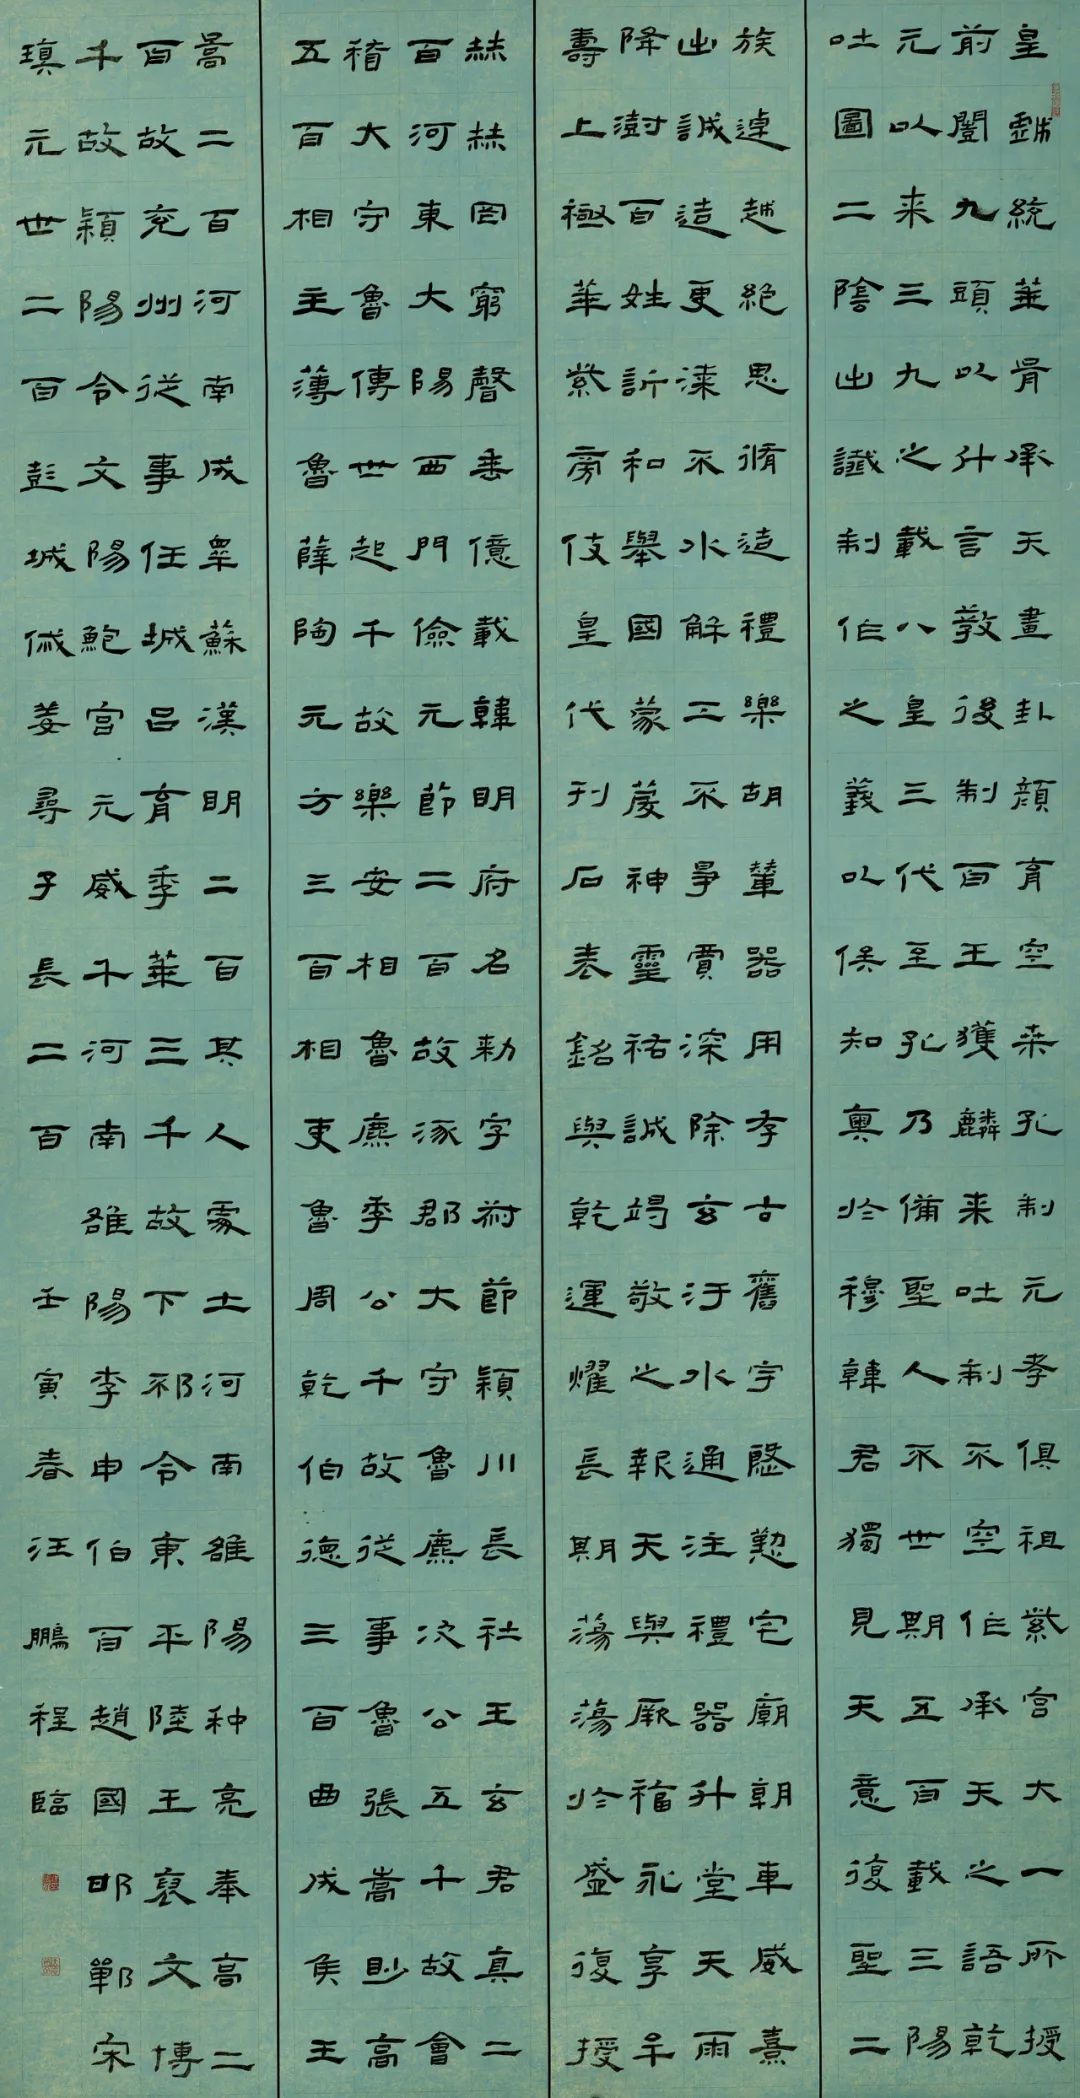 皇戲統華胥承天畫卦顏育空桑孔制元孝俱祖紫宮大一所授
前闓九頭以什言教後制百王獲麟来吐制不空作承天之語乾
元以来三九之載八皇三代至孔乃備聖人不世期五百載三陽
吐圖二陰出讖制作之義以俟知奧於穆韓君獨見天意復聖二
族逴越絕思脩造禮樂胡輦器用存古舊宇慇懃宅廟朝車威熹
出誠造更漆不水解工不爭賈深除玄汙水通注禮器升堂天雨
降澍百姓訢和舉國蒙慶神靈祐誠竭敬之報天與厥福永享牟
壽上極華紫旁伎皇代刊石表銘與乾運燿長期蕩蕩於盛復授
赫赫罔窮聲垂億載韓明府名勑字叔節穎川長社王玄君真二
百河東大陽西門儉元節二百故涿郡大守魯麃次公五千故會
稽大守魯傅世起千故樂安相魯麃季公千故從事魯張嵩眇高
五百相主薄魯薛陶元方三百相史魯周乾伯德三百曲成侯王
暠二百河南成睪蘇漢明二百其人處士河南雒陽种亮奉高二
百故兗州從事任城呂育季華三千故下邳令東平陸王褒文博
千故穎陽令文陽鮑宮元威千河南雒陽李申伯百趙國邯鄲宋
瑱元世二百彭城姜尋子長二百 壬寅春汪鵬程臨